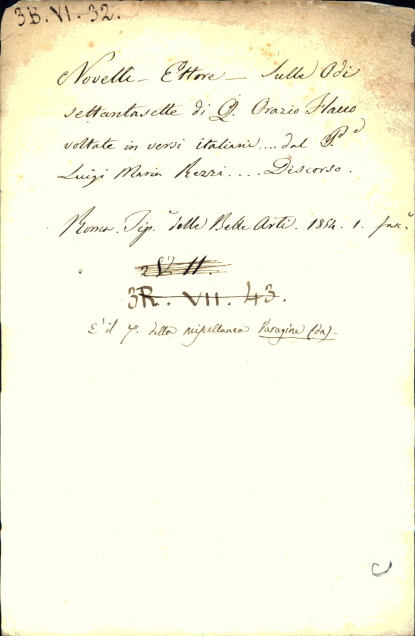 3B. VI. 32.
Novelli - Ettore - Sulle Odi
settantasette di Q. Orazio Flacco
voltate in versi italiani... dal P.e
Luigi Maria Rezzi.... Discorso.
Roma. Tip.a delle Belle Arti. 1854. 1. fasc.o
3R. VII. 43.
E' il 7. della miscellanea Paragine (da)